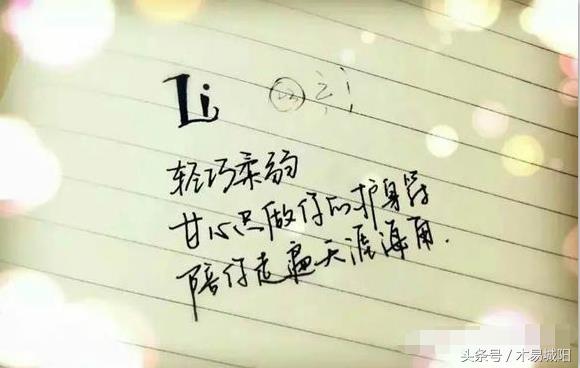 Li
轻巧柔弱
甘心只做你的护身符
陪你走遍天涯海角.
头条号 / 木易城阳